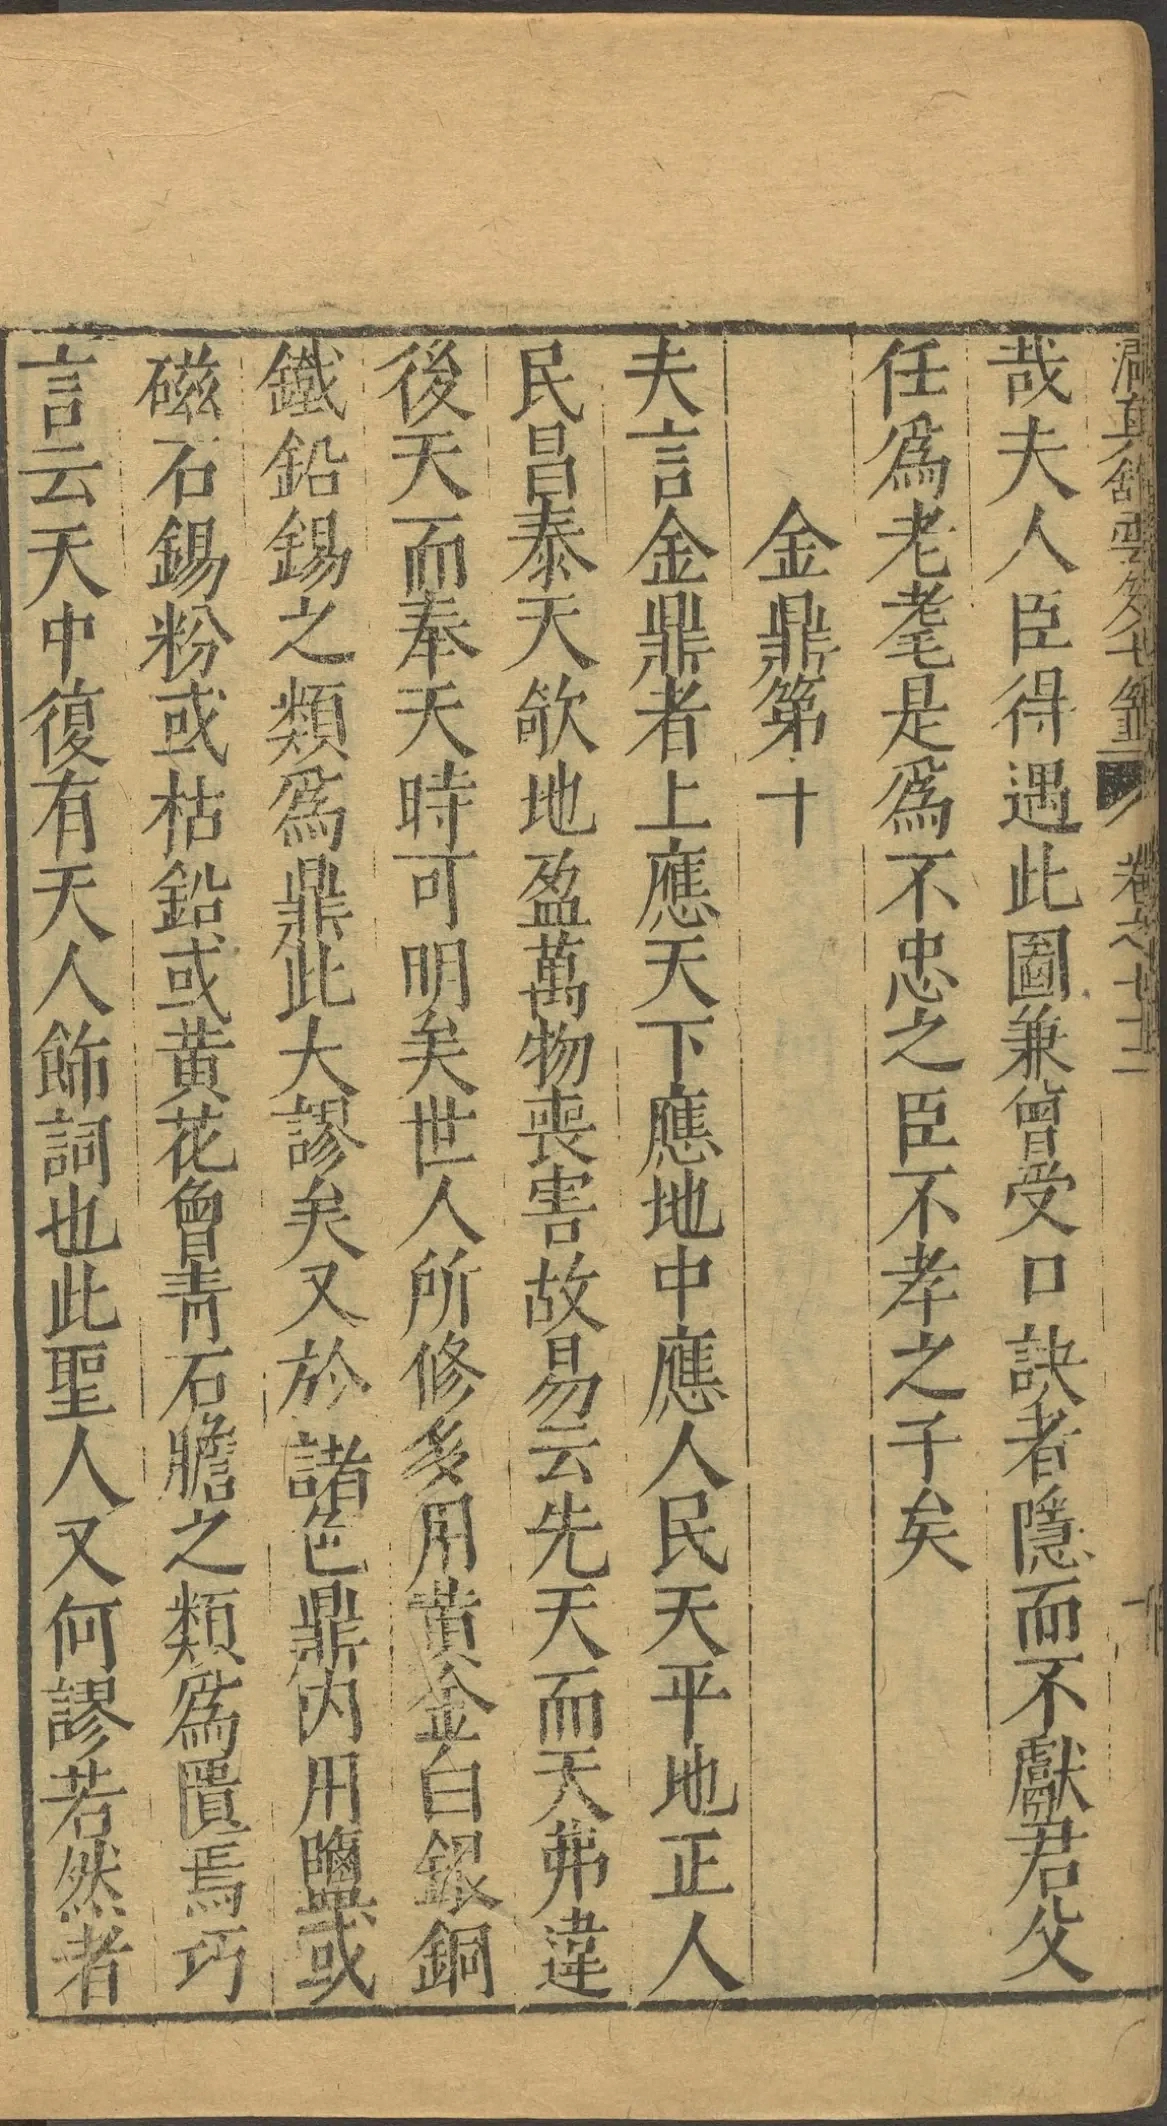 哉夫人臣得遇此圖兼曾受口訣者隱而不獻君父
任爲老耄是爲不忠之臣不孝之子矣
金鼎第十
夫言金鼎者上應天下應地中應人民天平地正人
民昌泰天欹地盈萬物喪害故易云先天而天弗違
後天而奉天時可明矣世人所修多用黄金白銀銅
鐵鉛錫之類爲鼎此大謬矣又於諸色鼎内用鹽或
磁石錫粉或枯鉛或黄花曾青石膽之類爲匱焉巧
言云天中復有天人飾詞也此聖人又何謬若然者